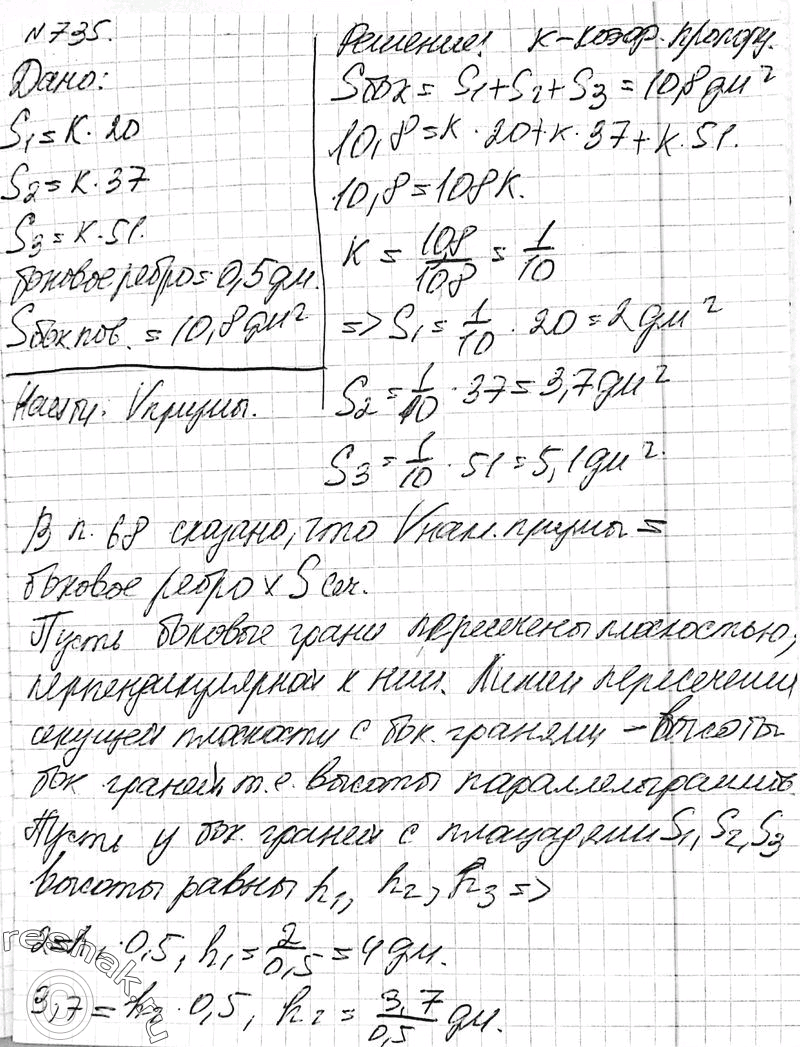 №735.
Дано:
S₁ = K · 20
S₂ = K · 37
S₃ = K · 51.
боковое ребро = 0,5 дм.
Sбок пов. = 10,8 дм²
Найти: Vпризмы.
Решение: K – коэф. пропорц.
Sбок = S₁ + S₂ + S₃ = 10,8 дм²
10,8 = K · 20 + K · 37 + K · 51.
10,8 = 108K.
K = 10,8/108 = 1/10
=> S₁ = 1/10 · 20 = 2 дм²
S₂ = 1/10 · 37 = 3,7 дм²
S₃ = 1/10 · 51 = 5,1 дм².
В п. 68 сказано, что Vнакл. призмы =
боковое ребро x Sсеч.
Пусть боковые грани пересечены плоскостью,
перпендикулярной к ним. Линии пересечения
секущей плоскости с бок. гранями – высоты
бок граней, т.е. высоты параллелограммов.
Пусть у бок. граней с площадями S₁, S₂, S₃
высоты равны h₁, h₂, h₃ =>
2 = h₁ · 0,5, h₁ = 2/0,5 = 4 дм.
3,7 = h₂ · 0,5, h₂ = 3,7/0,5 дм.
© reshak.ru